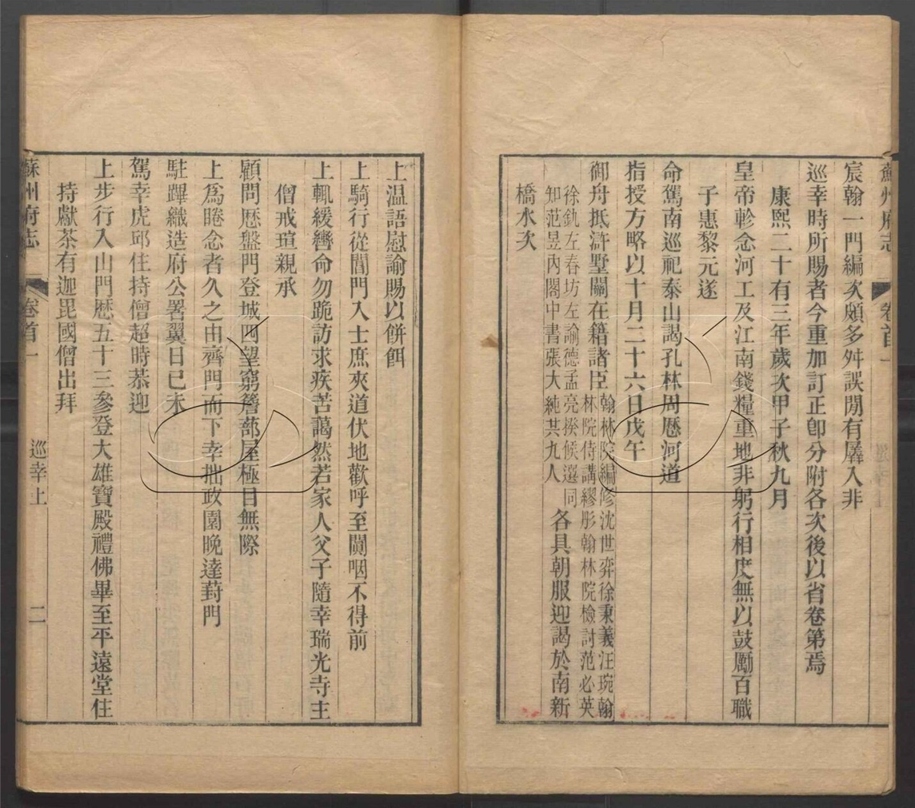 蘇州府志 卷首一
宸翰一門編次頗多舛誤閒有羼入非
巡幸時所賜者今重加訂正卽分附各次後以省卷第焉
康熙二十有三年歲次甲子秋九月
皇帝軫念河工及江南錢糧重地非躬行相度無以鼓勵百職
子惠黎元遂
命駕南巡祀泰山謁孔林周歷河道
指授方略以十月二十六日戊午
御舟抵滸墅關在籍諸臣
翰林院編修沈世奕徐秉義汪琬翰
林院侍講繆彤翰林院檢討范必英
徐釚左春坊左諭德孟亮揆候選同
知范昱內閣中書張大純共九人
各具朝服迎謁於南新
橋水次
上溫語慰諭賜以餅餌
上騎行從閶門入士庶夾道伏地歡呼至闐咽不得前
上輒緩轡命勿跪訪求疾苦藹然若家人父子隨幸瑞光寺主
僧戒瑄親承
顧問歷盤門登城四望窮簷蔀屋極目無際
上爲睠念者久之由齊門而下幸拙政園晚達葑門
駐蹕織造府公署翼日己未
駕幸虎邱住持僧超時恭迎
上步行入山門歷五十三參登大雄寶殿禮佛畢至平遠堂住
持獻茶有迦毘國僧出拜
蘇州府志 卷首一 巡幸上 二